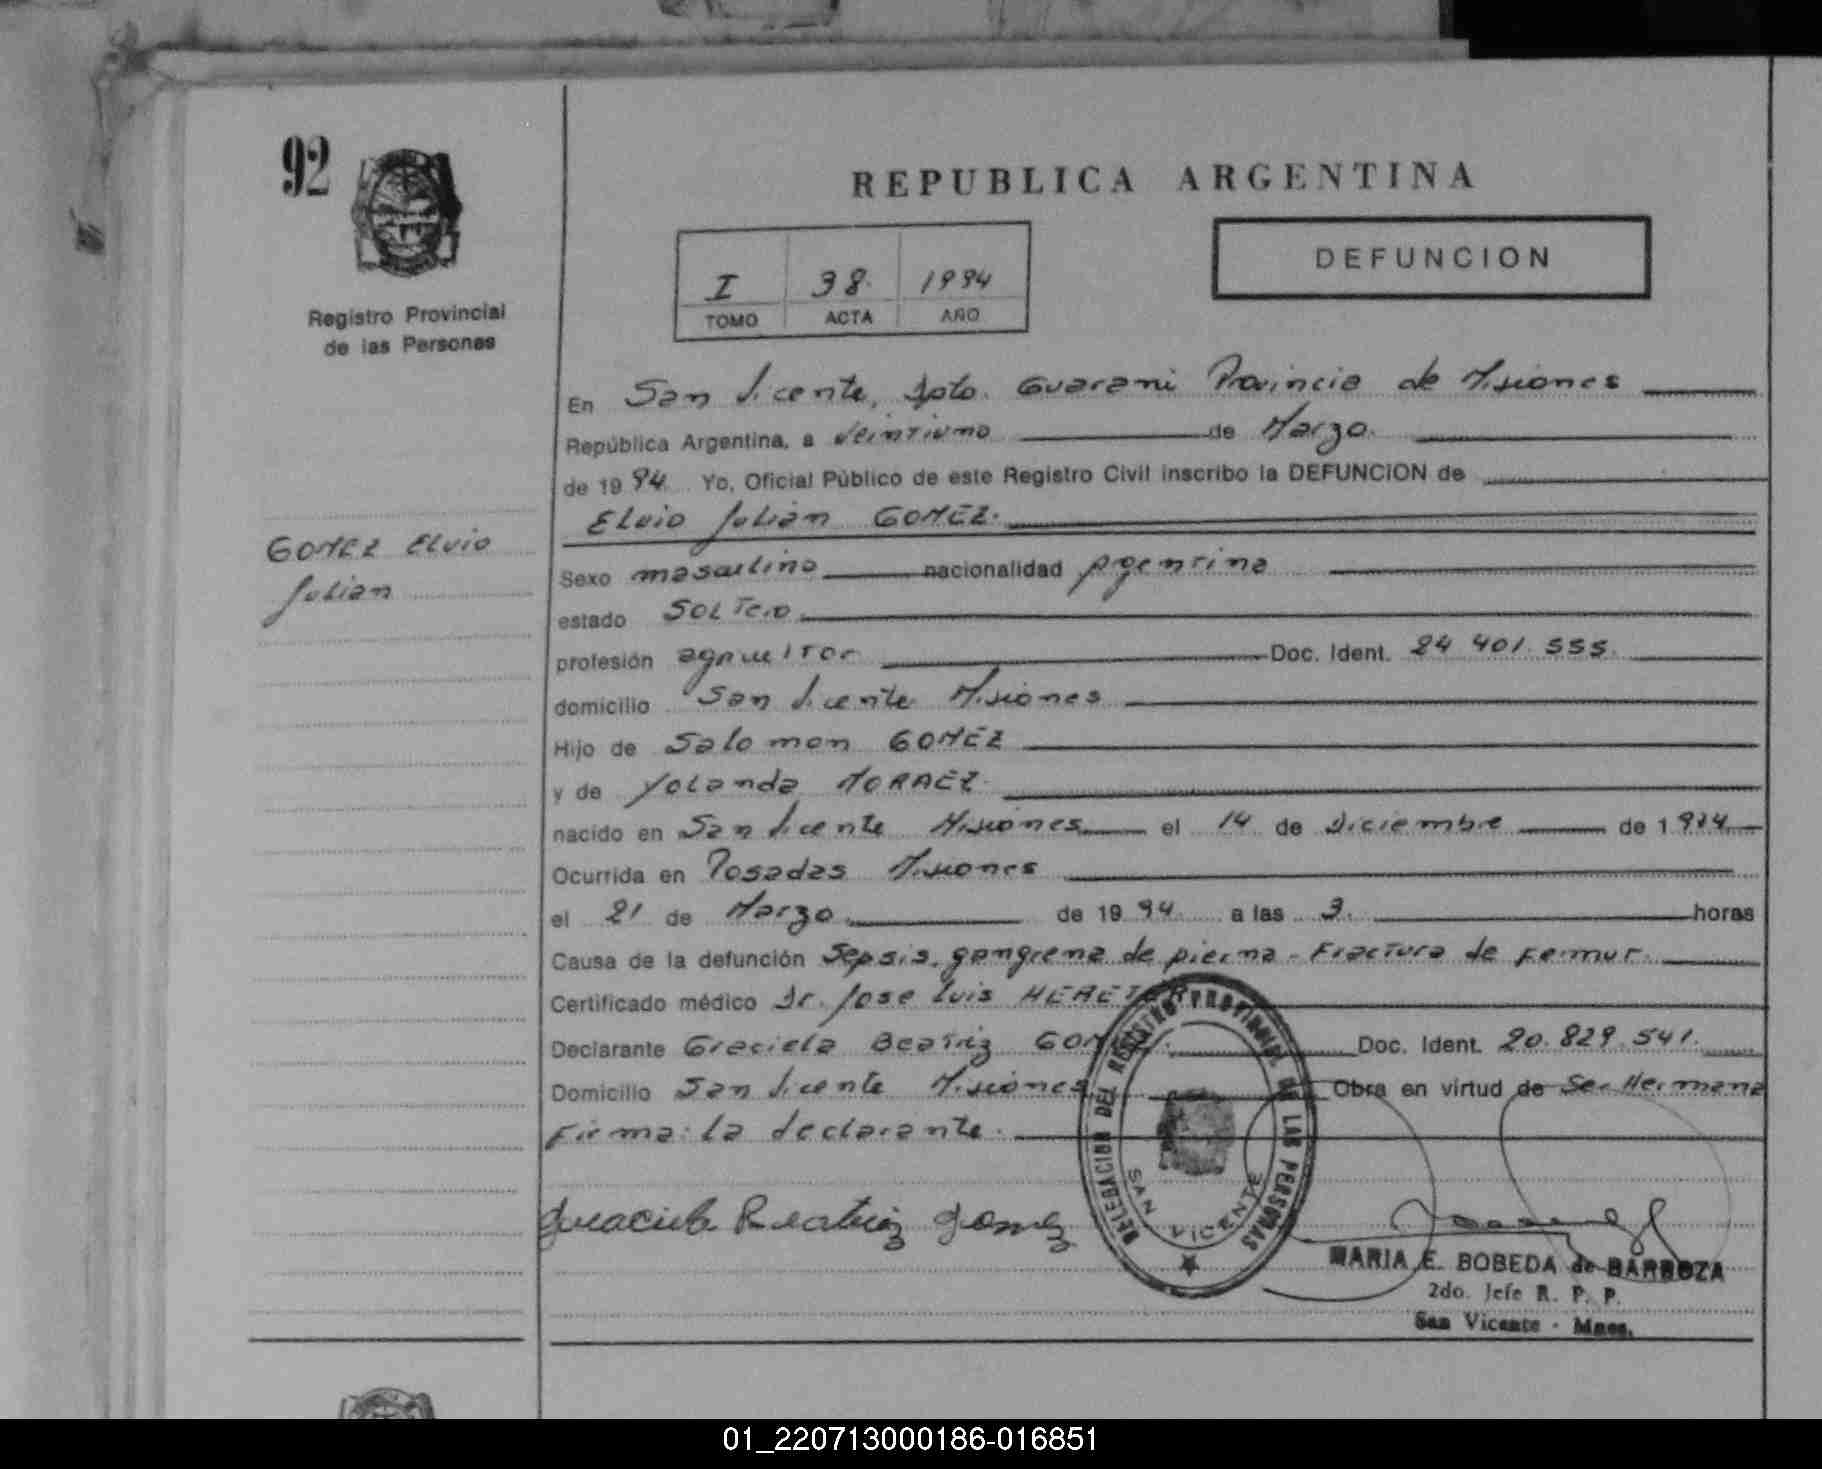 92
REPUBLICA ARGENTINA
I 38. 1994
TOMO ACTA AÑO
DEFUNCION
Registro Provincial
de las Personas
En San Vicente, Dpto. Guarani Provincia de Misiones
República Argentina, a veintiuno de Marzo.
de 1994. Yo, Oficial Público de este Registro Civil inscribo la DEFUNCION de
Elvio Julian GOMEZ.
GOMEZ Elvio
Julian
Sexo masculino nacionalidad Argentina
estado Soltero
profesión agricultor Doc. Ident. 24 401.555.
domicilio San Vicente Misiones
Hijo de Salomon GOMEZ
y de Yolanda MORAEZ.
nacido en San Vicente Misiones el 14 de Diciembre de 1974
Ocurrida en Posadas Misiones
el 21 de Marzo de 1994 a las 3. horas
Causa de la defunción Sepsis, gangrena de pierna - Fractura de Femur.
Certificado médico Dr. Jose Luis
Declarante Graciela Beatriz GOMEZ. Doc. Ident. 20.829.541.
Domicilio San Vicente Misiones Obra en virtud de Ser Hermana
Firma: la declarante.
Graciela Beatriz Gomez
DELEGACION DEL REGISTRO PROVINCIAL DE LAS PERSONAS
SAN VICENTE
MARIA E. BOBEDA de BARBOZA
2do. Jefe R. P. P.
San Vicente - Mnes.
01_220713000186-016851